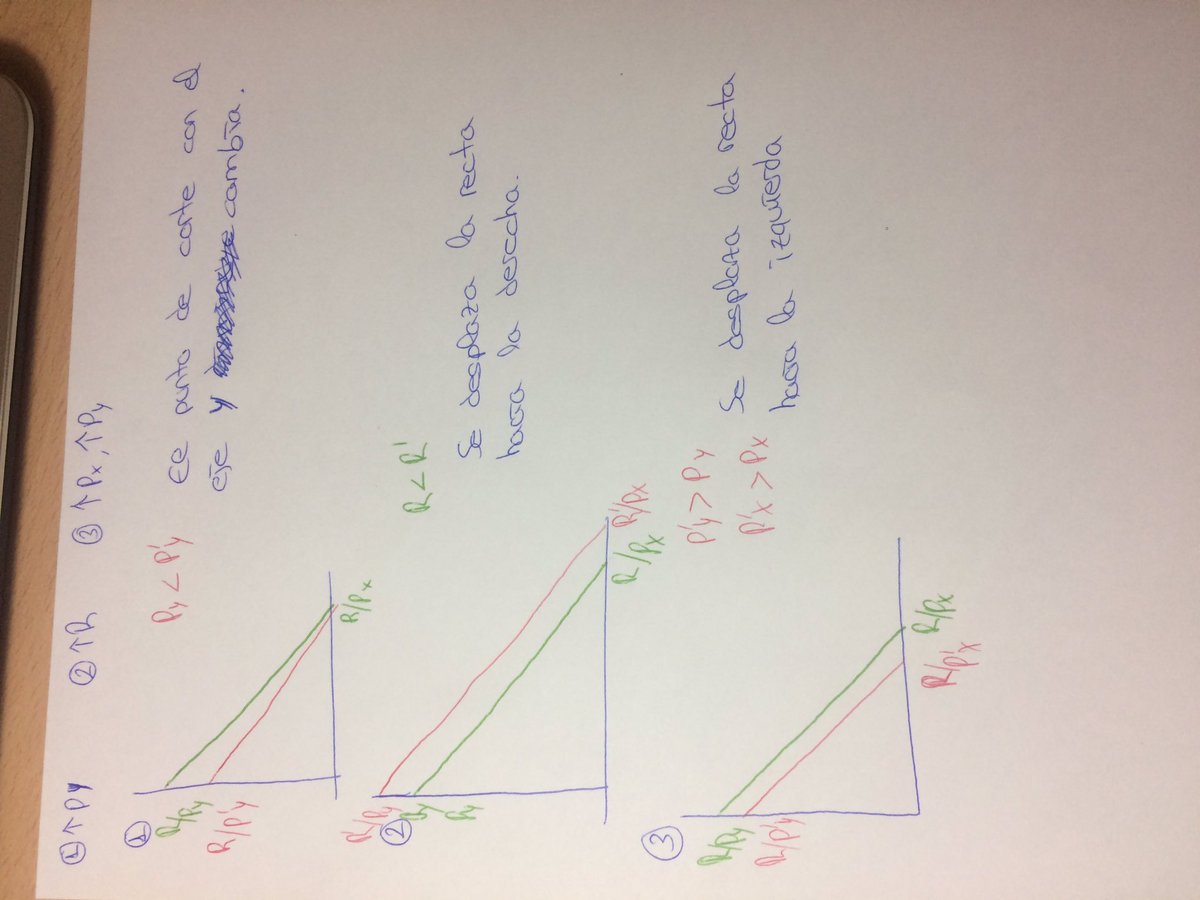 ① ↑PY ② ↑R ③ ↑Px, ↑Py
①
R/Py
R/P'y
R/Px
Py < P'y
El punto de corte con el
eje y cambia.
②
R'/Py
R/Px
R'/Px
R < R'
Se desplaza la recta
hacia la derecha.
③
R/Py
R/P'y
R/P'x
R/Px
P'y > Py
P'x > Px
Se desplaza la recta
hacia la izquierda